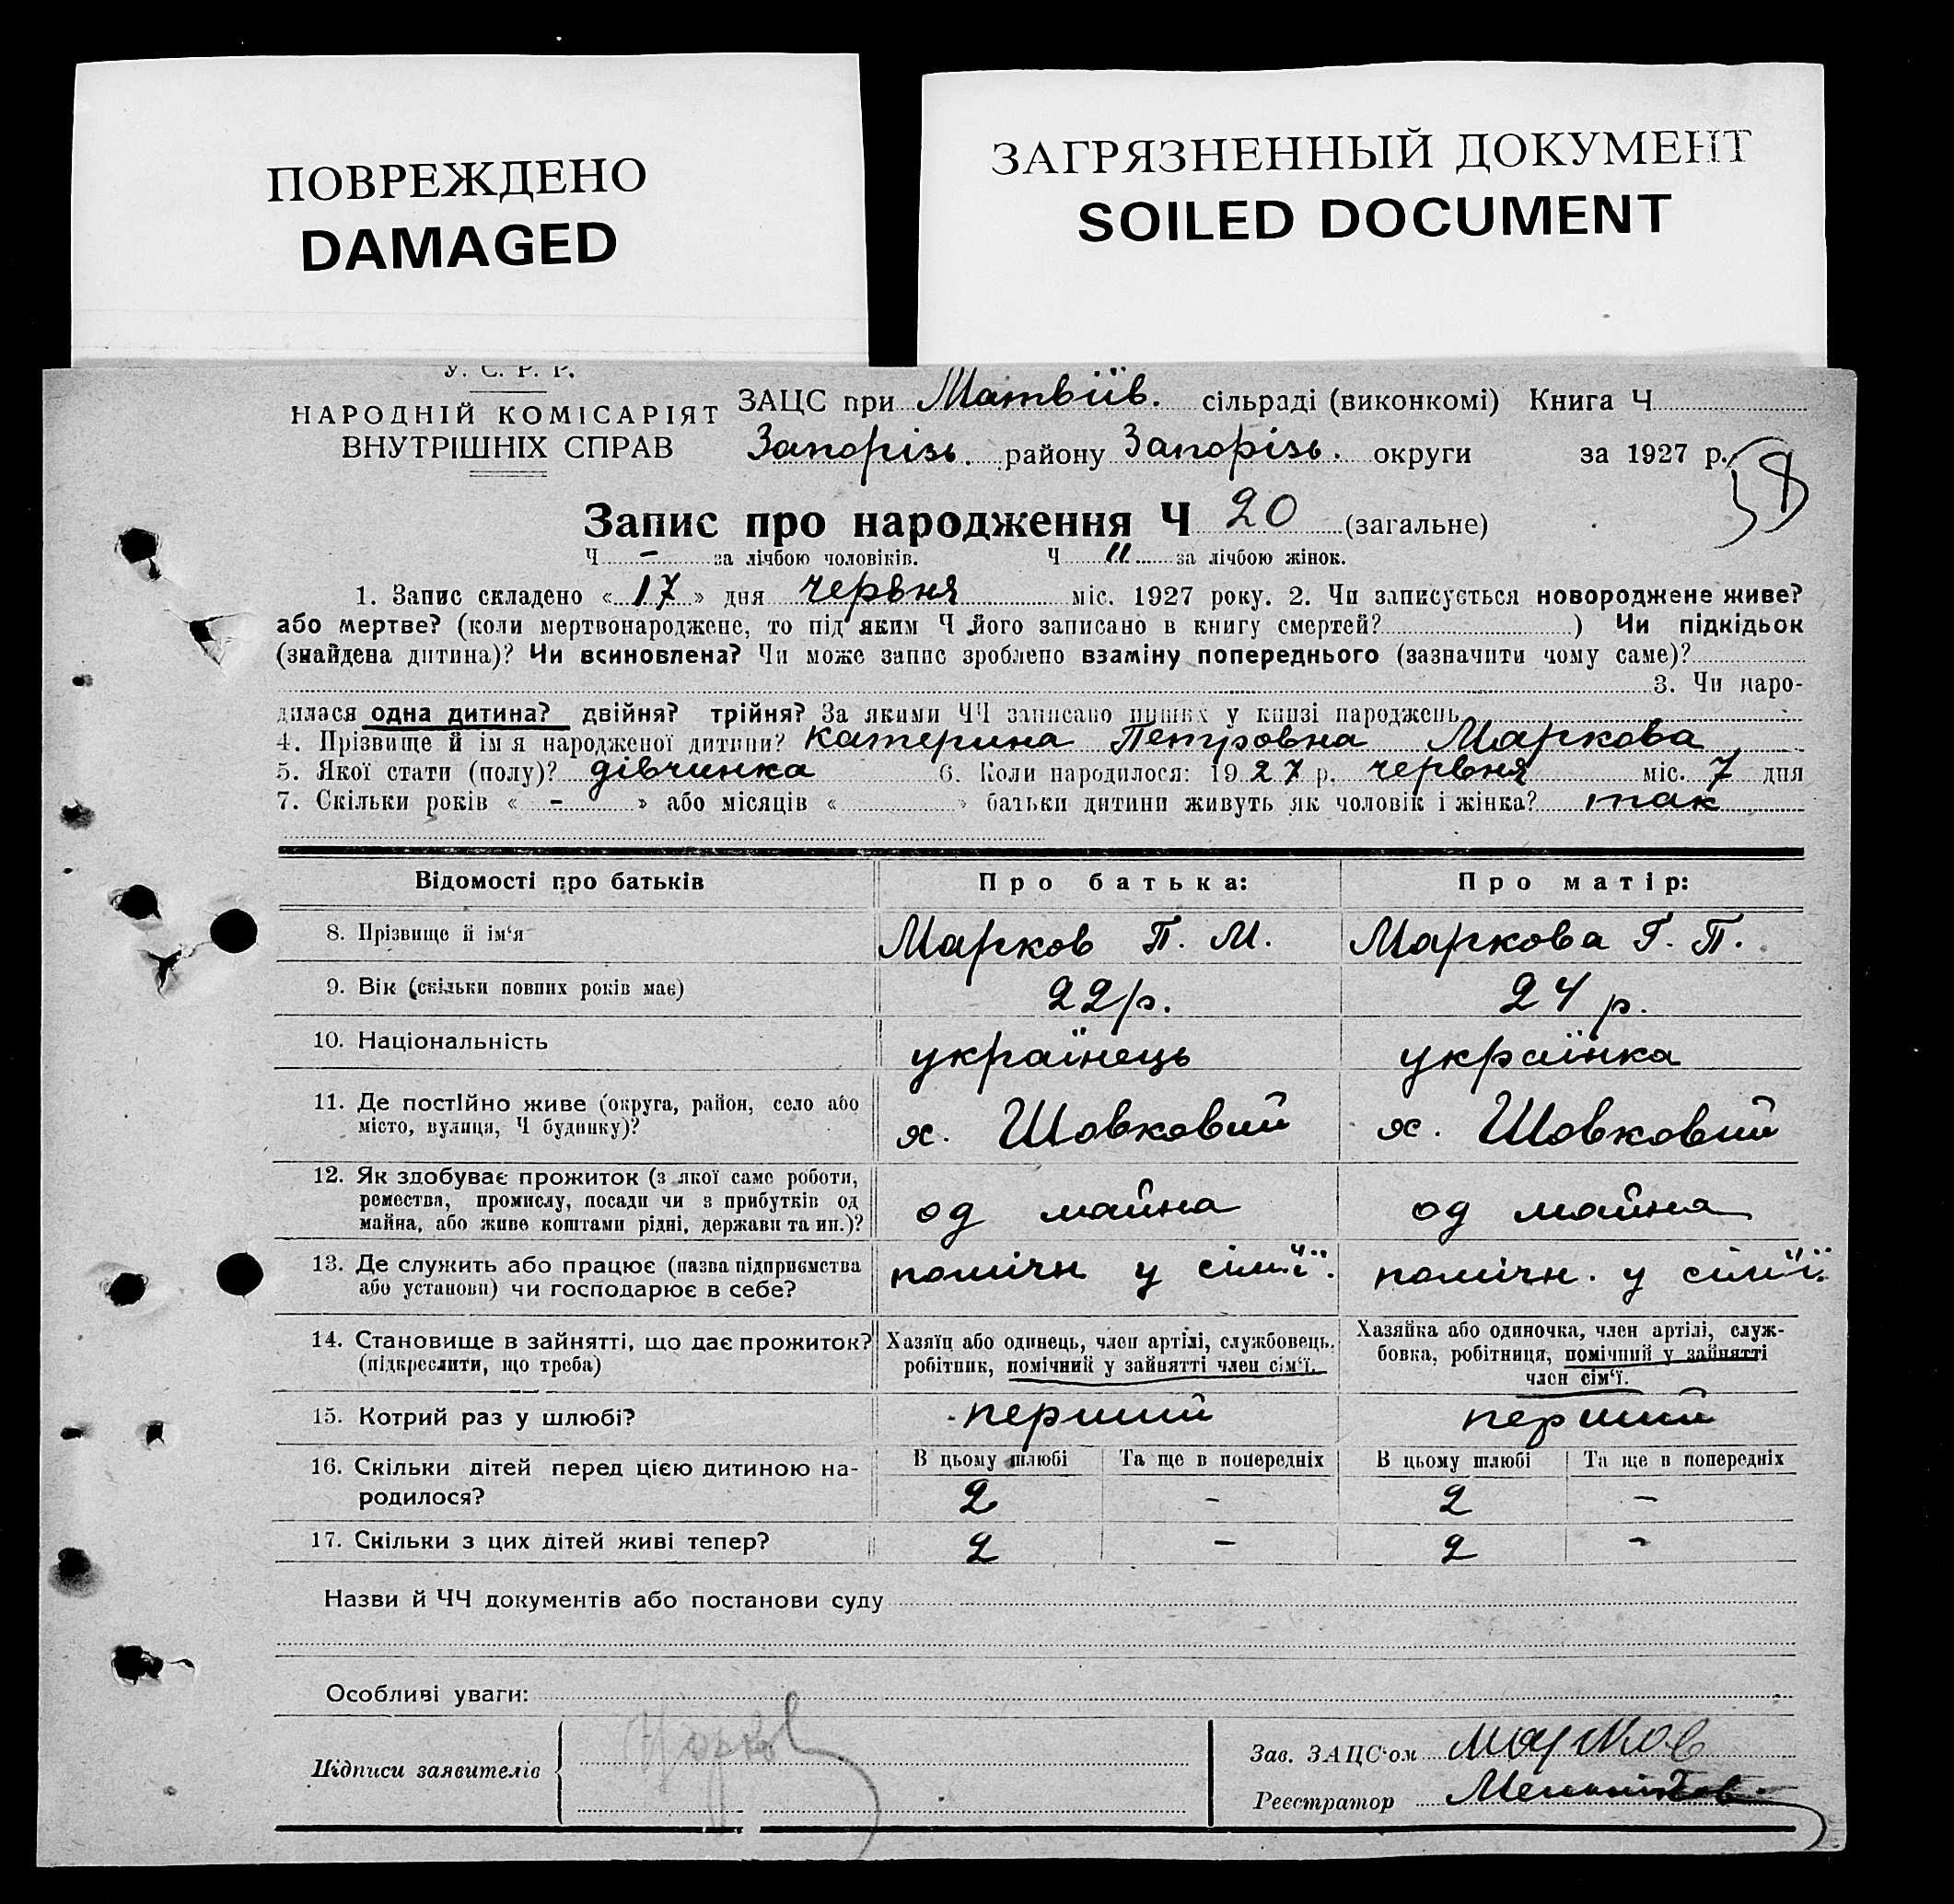 ПОВРЕЖДЕНО
DAMAGED
ЗАГРЯЗНЕННЫЙ ДОКУМЕНТ
SOILED DOCUMENT
У. С. Р. Р.
НАРОДНІЙ КОМІСАРІЯТ
ВНУТРІШНІХ СПРАВ
ЗАЦС при Матвіїв. сільраді (виконкомі) Книга Ч
Запорізь. району Запорізь. округи за 1927 р.
Запис про народження Ч 20 (загальне)
Ч - за лічбою чоловіків. Ч 11 за лічбою жінок.
1. Запис складено «17» дня червня міс. 1927 року. 2. Чи записується новороджене живе?
або мертве? (коли мертвонароджене, то під яким Ч його записано в книгу смертей? ) Чи підкідьок
(знайдена дитина)? Чи всиновлена? Чи може запис зроблено взаміну попереднього (зазначити чому саме)?
3. Чи наро-
дилася одна дитина? двійня? трійня? За якими ЧЧ записано инших у книзі народжень
4. Прізвище й ім'я народженої дитини? Катерина Петровна Маркова
5. Якої стати (полу)? дівчинка 6. Коли народилося: 1927 р. червня міс. 7 дня
7. Скільки років « - » або місяців « » батьки дитини живуть як чоловік і жінка? так
Відомості про батьків Про батька: Про матір:
8. Прізвище й ім'я Марков П. М. Маркова Г. П.
9. Вік (скільки повних років має) 22 р. 24 р.
10. Національність українець українка
11. Де постійно живе (округа, район, село або
місто, вулиця, Ч будинку)? х. Шовковий х. Шовковий
12. Як здобуває прожиток (з якої саме роботи,
ремества, промислу, посади чи з прибутків од
майна, або живе коштами рідні, держави та ин.)? од майна од майна
13. Де служить або працює (назва підприємства
або установи) чи господарює в себе? помічн у сім'ї. помічн. у сім'ї.
14. Становище в зайнятті, що дає прожиток?
(підкреслити, що треба)
Хазяїн або одинець, член артілі, службовець,
робітник, помічний у зайнятті член сім'ї.
Хазяйка або одиночка, член артілі, служ-
бовка, робітниця, помічний у зайнятті
член сім'ї.
15. Котрий раз у шлюбі? перший перший
16. Скільки дітей перед цією дитиною на-
родилося?
В цьому шлюбі Та ще в попередніх В цьому шлюбі Та ще в попередніх
2 - 2 -
17. Скільки з цих дітей живі тепер? 2 - 2 -
Назви й ЧЧ документів або постанови суду
Особливі уваги:
Підписи заявителів
Зав. ЗАЦС'ом Марков
Реєстратор